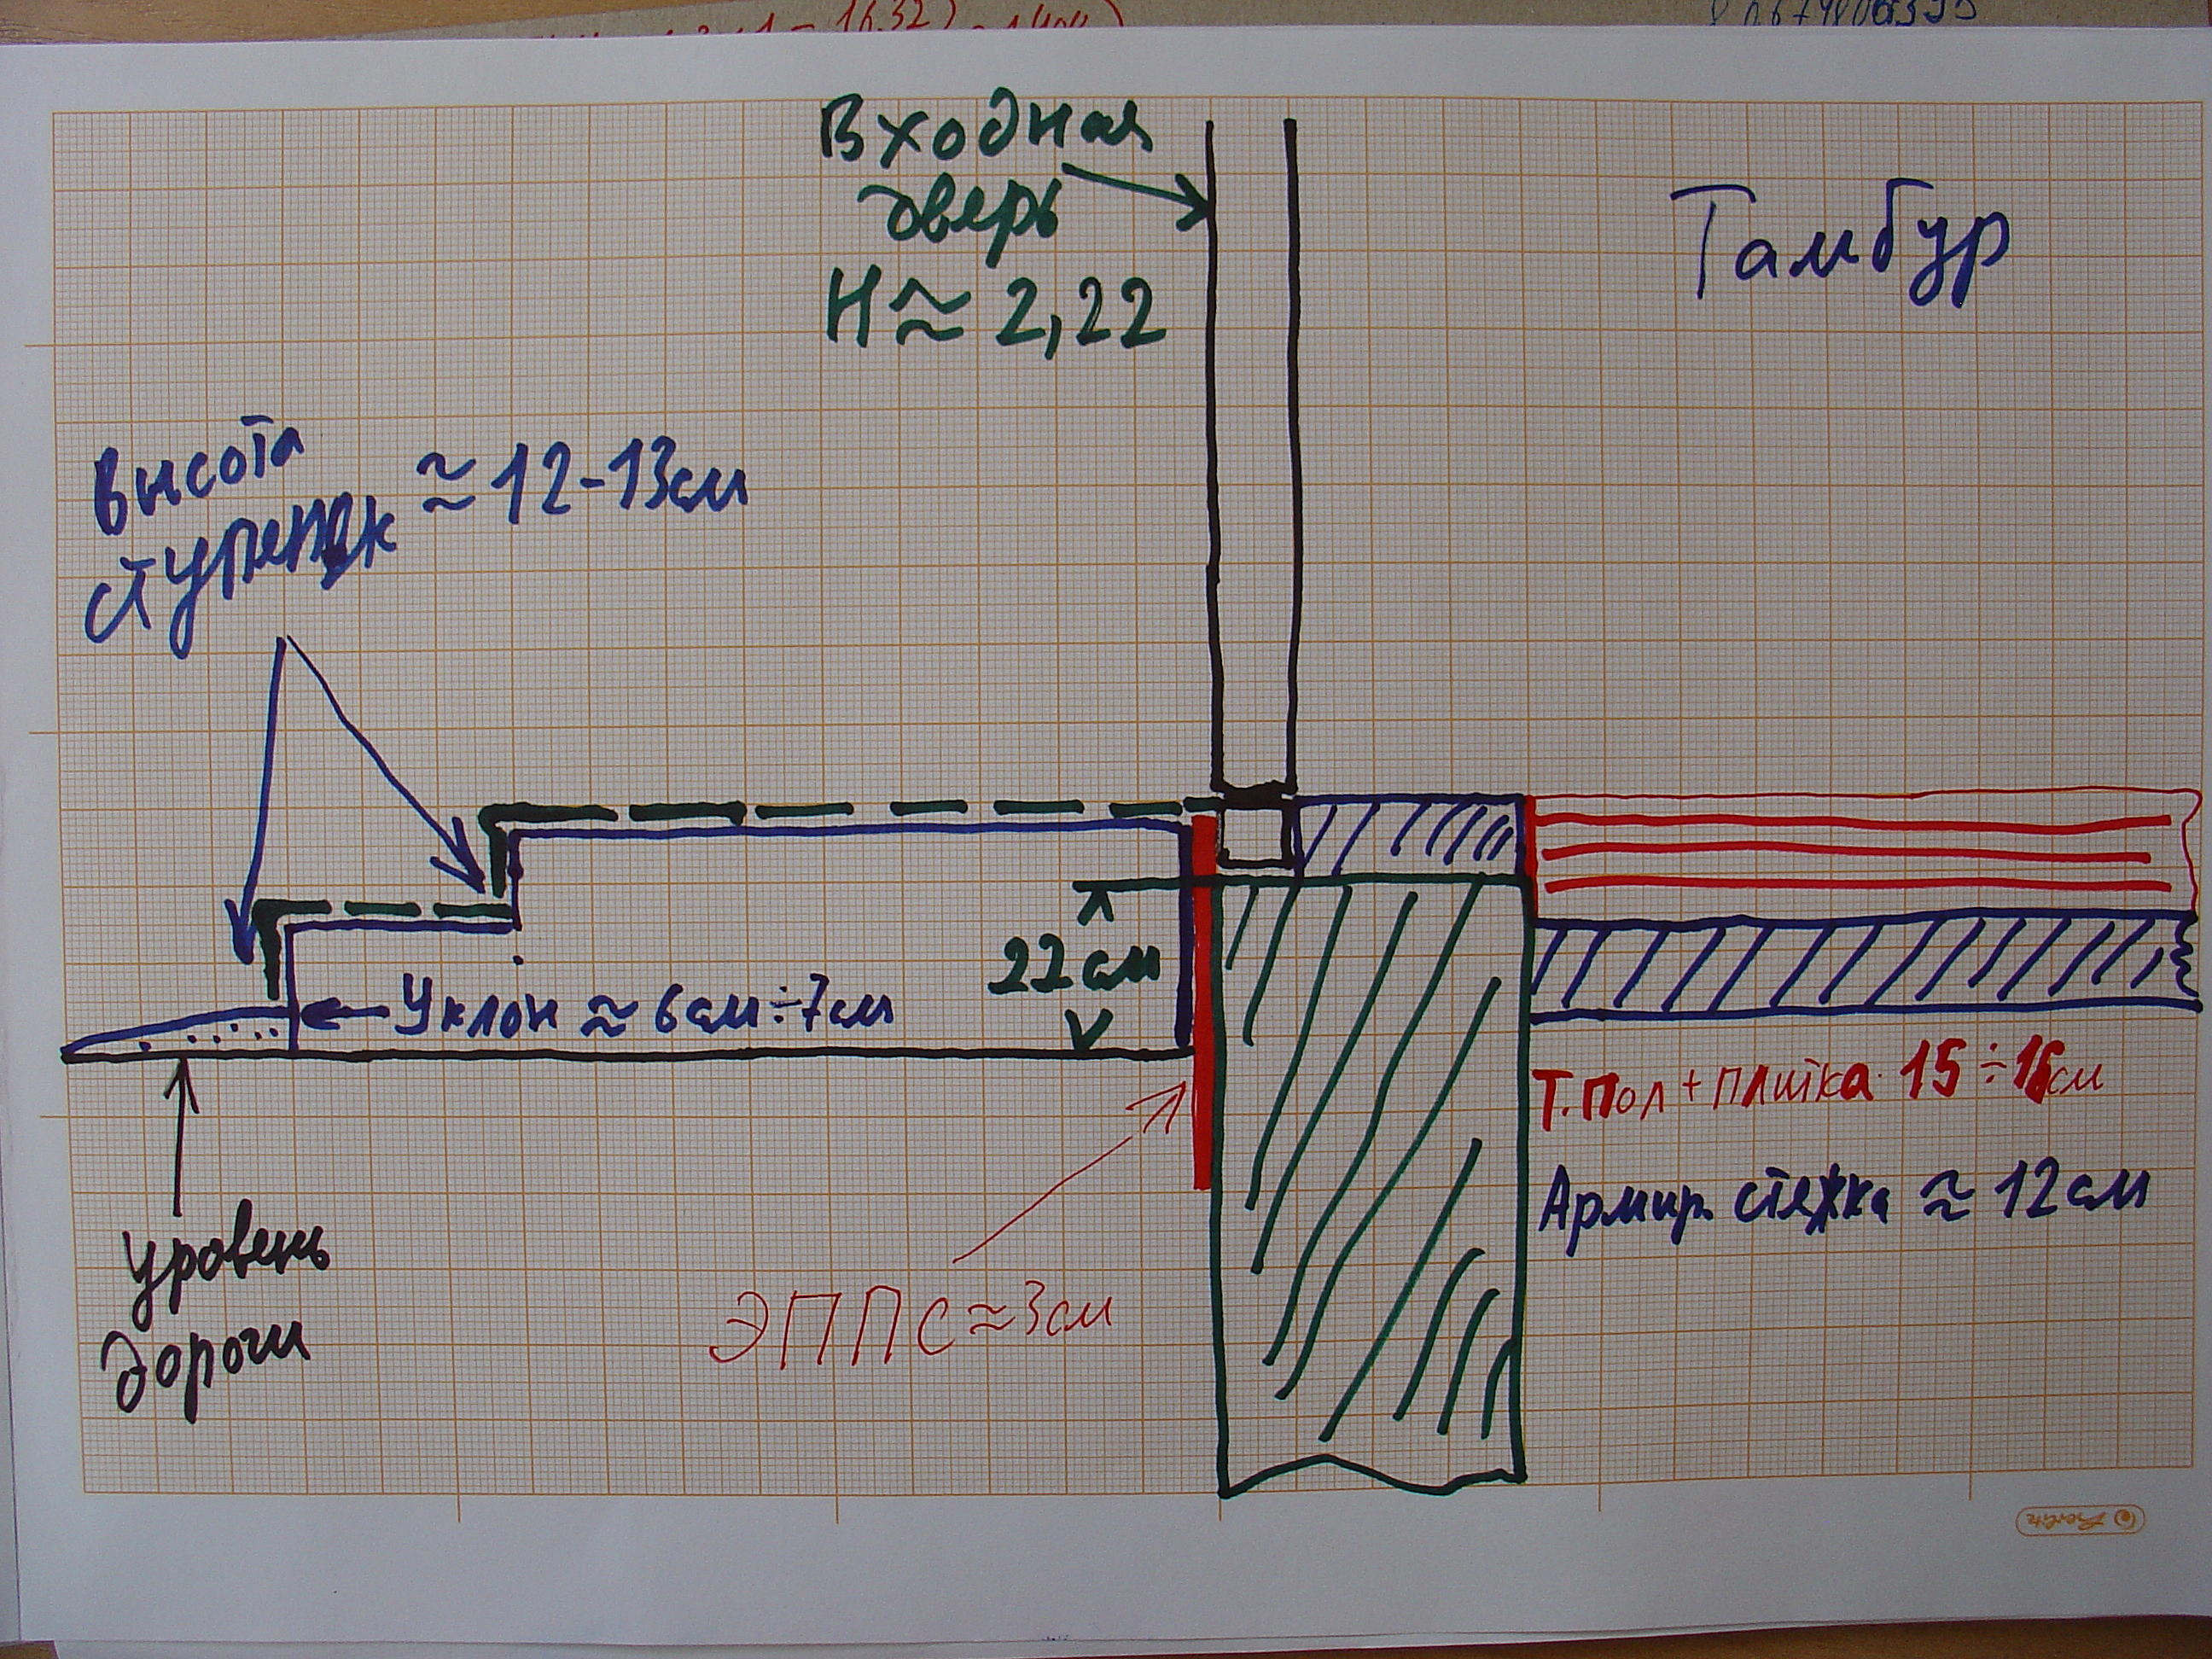 Входная
дверь
H ≈ 2,22
Тамбур
высота
ступенек ≈ 12-13см
22 см
Уклон ≈ 6см÷7см
Т.пол + плитка 15÷16см
Армир. стяжка ≈ 12см
уровень
дороги
ЭППС ≈ 3см